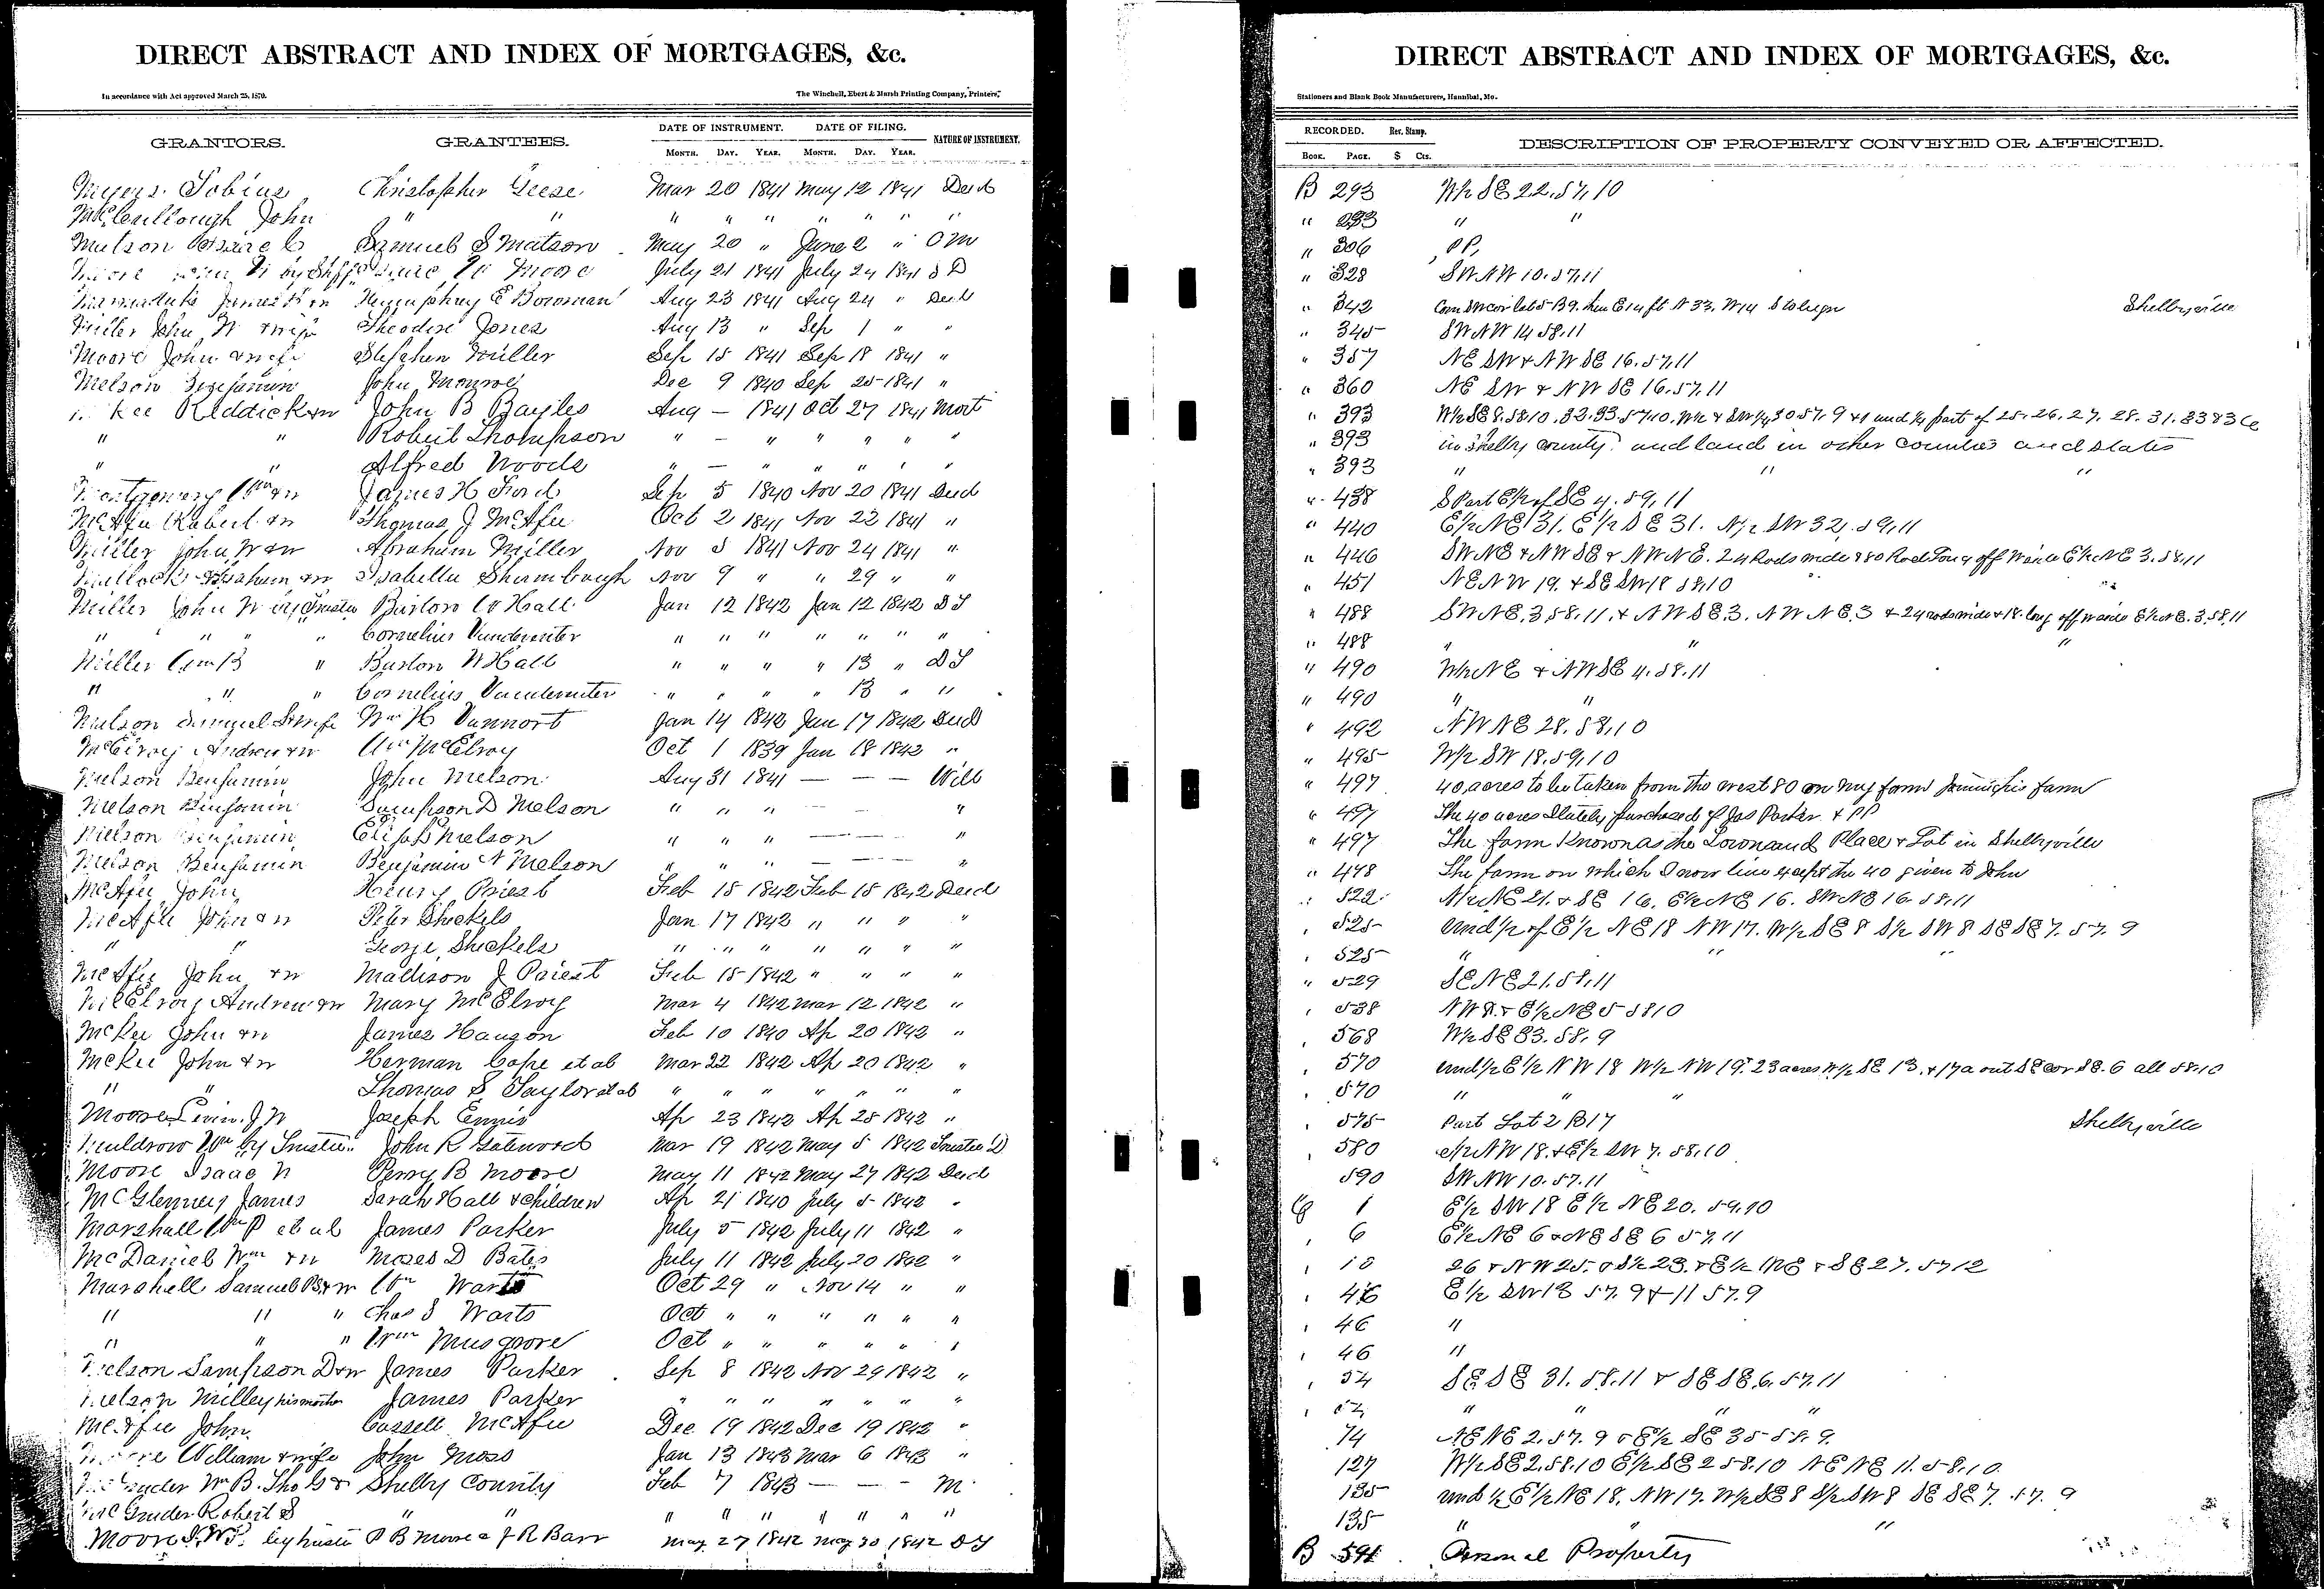 DIRECT ABSTRACT AND INDEX OF MORTGAGES, &c.
In accordance with Act approved March 25, 1870. The Winchell, Ebert & Marsh Printing Company, Printers,
GRANTORS. GRANTEES. DATE OF INSTRUMENT. DATE OF FILING. NATURE OF INSTRUMENT.
MONTH. DAY. YEAR. MONTH. DAY. YEAR.
Myers Tobias Christopher Geese Mar 20 1841 May 12 1841 Deed
McCullough John " " " " " " " " "
Samuel S Matson May 20 " June 2 " O M
July 21 1841 July 24 1841 S D
Humphrey E Bowman Aug 23 1841 Aug 24 " Deed
Miller John W & wife Theodore Jones Aug 13 " Sep 1 " "
Moore John & wife Stephen Miller Sep 15 1841 Sep 18 1841 "
Melson Benjamin John Monroe Dec 9 1840 Sep 25 1841 "
McKee Reddick & w John B Bayles Aug — 1841 Oct 27 1841 Mort
" " Robert Thompson " — " " " " "
" " Alfred Woods " — " " " " "
Montgomery Wm & w James H Ford Sep 5 1840 Nov 20 1841 Deed
McAfee Robert & w Thomas J McAfee Oct 2 1841 Nov 22 1841 "
Miller John W & w Abraham Miller Nov 5 1841 Nov 24 1841 "
Isabella Shumbaugh Nov 9 " " 29 " "
Miller John W by Trustee Burton W Hall Jan 12 1842 Jan 12 1842 D T
" " " " Cornelius Vandeventer " " " " " " "
Miller Wm B " Burton W Hall " " " " 13 " D T
" " " Cornelius Vandeventer " " " " 13 " "
Melson Samuel & wife Wm H Vannort Jan 14 1842 Jan 17 1842 Deed
McElroy Andrew & w Wm McElroy Oct 1 1839 Jan 18 1842 "
Melson Benjamin John Melson Aug 31 1841 — — — Will
Melson Benjamin Sampson D Melson " " " — — "
Melson Benjamin Elijah Melson " " " — — "
Melson Benjamin Benjamin N Melson " " " — — — "
McAfee John Henry Priest Feb 15 1842 Feb 15 1842 Deed
McAfee John & w Peter Sheckels Jan 17 1842 " " " "
" " George Sheckels " " " " " " "
McAfee John & w Maddison J Priest Feb 15 1842 " " " "
McElroy Andrew & w Mary McElroy Mar 4 1842 Mar 12 1842 "
McKee John & w James Hanson Feb 10 1840 Ap 20 1842 "
McKee John & w Herman Cope et al Mar 22 1842 Ap 20 1842 "
" " Thomas S Taylor et al " " " " " " "
Moore Levin J W Joseph Ennis Ap 23 1842 Ap 25 1842 "
Muldrow Wm by Trustee John R Gatewood Mar 19 1842 May 5 1842 Trustee D
Moore Isaac N Perry B Moore May 11 1842 May 27 1842 Deed
McGlenney James Sarah Hall & Children Ap 21 1840 July 5 1842 "
Marshall Wm P et al James Parker July 5 1842 July 11 1842 "
McDaniel Wm & w Moses D Bates July 11 1842 July 20 1842 "
Marshall Samuel B & w Wm Warts Oct 29 " Nov 14 " "
" " " Chas S Warts Oct " " " " " "
" " " Wm Musgrove Oct " " " " " "
Melson Sampson D & w James Parker Sep 8 1842 Nov 29 1842 "
Melson Milley his mother James Parker " " " " " " "
McAfee John Cassell McAfee Dec 19 1842 Dec 19 1842 "
Moore William & wife John Moss Jan 13 1843 Mar 6 1843 "
McGruder W B. Shelby County Feb 7 1843 — — - M
McGruder Robert S " " " " " " " " "
by trustee P B Moore & J R Barr May 27 1842 May 30 1842 D T
DIRECT ABSTRACT AND INDEX OF MORTGAGES, &c.
Stationers and Blank Book Manufacturers, Hannibal, Mo.
RECORDED. Rev. Stamp. DESCRIPTION OF PROPERTY CONVEYED OR AFFECTED.
BOOK. PAGE. $ Cts.
B 293 W½ SE 22.57.10
" 293 " "
" 306 P P,
" 328 SW NW 10.57.11
" 342 Shelbyville
" 345 SW NW 14 58.11
" 357 NE SW & NW SE 16.57.11
" 360 NE SW & NW SE 16.57.11
" 393 part of 25. 26. 27. 28. 31.
" 393 in Shelby County and land in other counties and states
" 393 " " "
" 438 S Part E½ of SE 4.59.11
" 440 E½ NE 31. E½ SE 31. N½ SW 32.59.11
" 446 SW NE & NW SE & NW NE. 24 Rods wide & 80 Rods long off W side E½ NE 3.58.11
" 451 NE NW 19. & SE SW 18 58.10
" 488 SW NE.3.58.11. & NW SE 3. NW NE.3 & 24 rods wide & 18 long off W side E½ NE.3.58.11
" 488 " " "
" 490 W½ NE & NW SE 4.58.11
" 490 " "
" 492 NW NE 28.58.10
" 495 W½ SW 18.59.10
" 497 40 acres to be taken from the west 80 on my farm
" 497 The 40 acres I lately purchased of Jas Parker & PP
" 497 The farm Known as the Townsend Place & Lot in Shelbyville
" 498 The farm on which I now live except the 40 given to John
" 522 N½ NE 21. & SE 16. E½ NE 16. SW NE 16.58.11
" 525 und ½ of E½ NE 18 NW 17. W½ SE 8 S½ SW 8 SE SE 7. 57. 9
" 525 " " "
" 529 SE NE 21.58.11
" 538 E½ NE 5 58 10
" 568 W½ SE 33.58.9
" 570 und ½ E½ NW 18 W½ NW 19. 23 acres W½ SE 13. & 17 a out SE cor SE. 6 all 58.10
" 570 " "
" 575 Part Lot 2 B 17 Shelbyville
" 580 N½ NW 18. & E½ SW 7. 58.10
590 SW NW 10.57.11
C 1 E½ SW 18 E½ NE 20. 59.10
" 6 E½ NE 6 & NE SE 6 57.11
" 10 26 & NW 25. & S½ 23. & E½ NE & SE 27. 57 12
" 46 E½ SW 18 57.9 & 11 57.9
" 46 "
" 46 "
" 54 SE SE 31. 58.11 & SE SE. 6. 57.11
" " " " "
74 NE NE 2.57.9 & E½ SE 35 58.9.
127 W½ SE 2.58.10 E½ SE 2 58.10 NE NE 11.58.10.
135 und ½ E½ NE 18. NW 17. W½ SE 8 S½ SW 8 SE SE 7. 57. 9
135 " " "
B 591 Personal Property